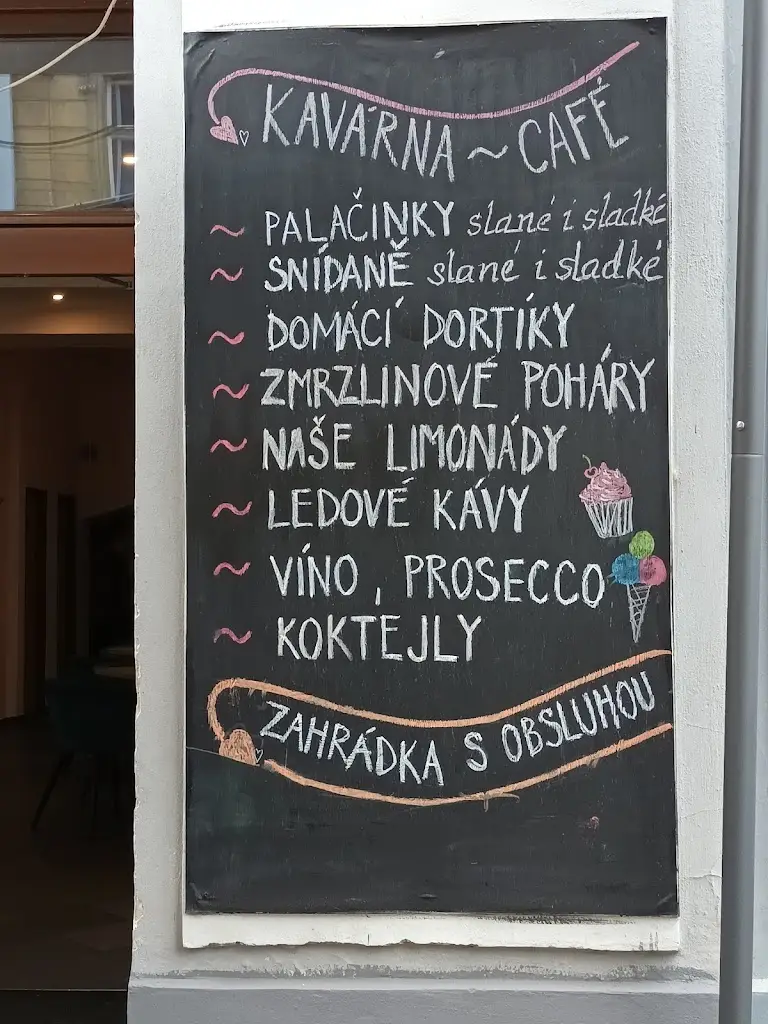 KAVÁRNA ~ CAFÉ
~ PALAČINKY slané i sladké
~ SNÍDANĚ slané i sladké
~ DOMÁCÍ DORTÍKY
~ ZMRZLINOVÉ POHÁRY
~ NAŠE LIMONÁDY
~ LEDOVÉ KÁVY
~ VÍNO, PROSECCO
~ KOKTEJLY
ZAHRÁDKA S OBSLUHOU